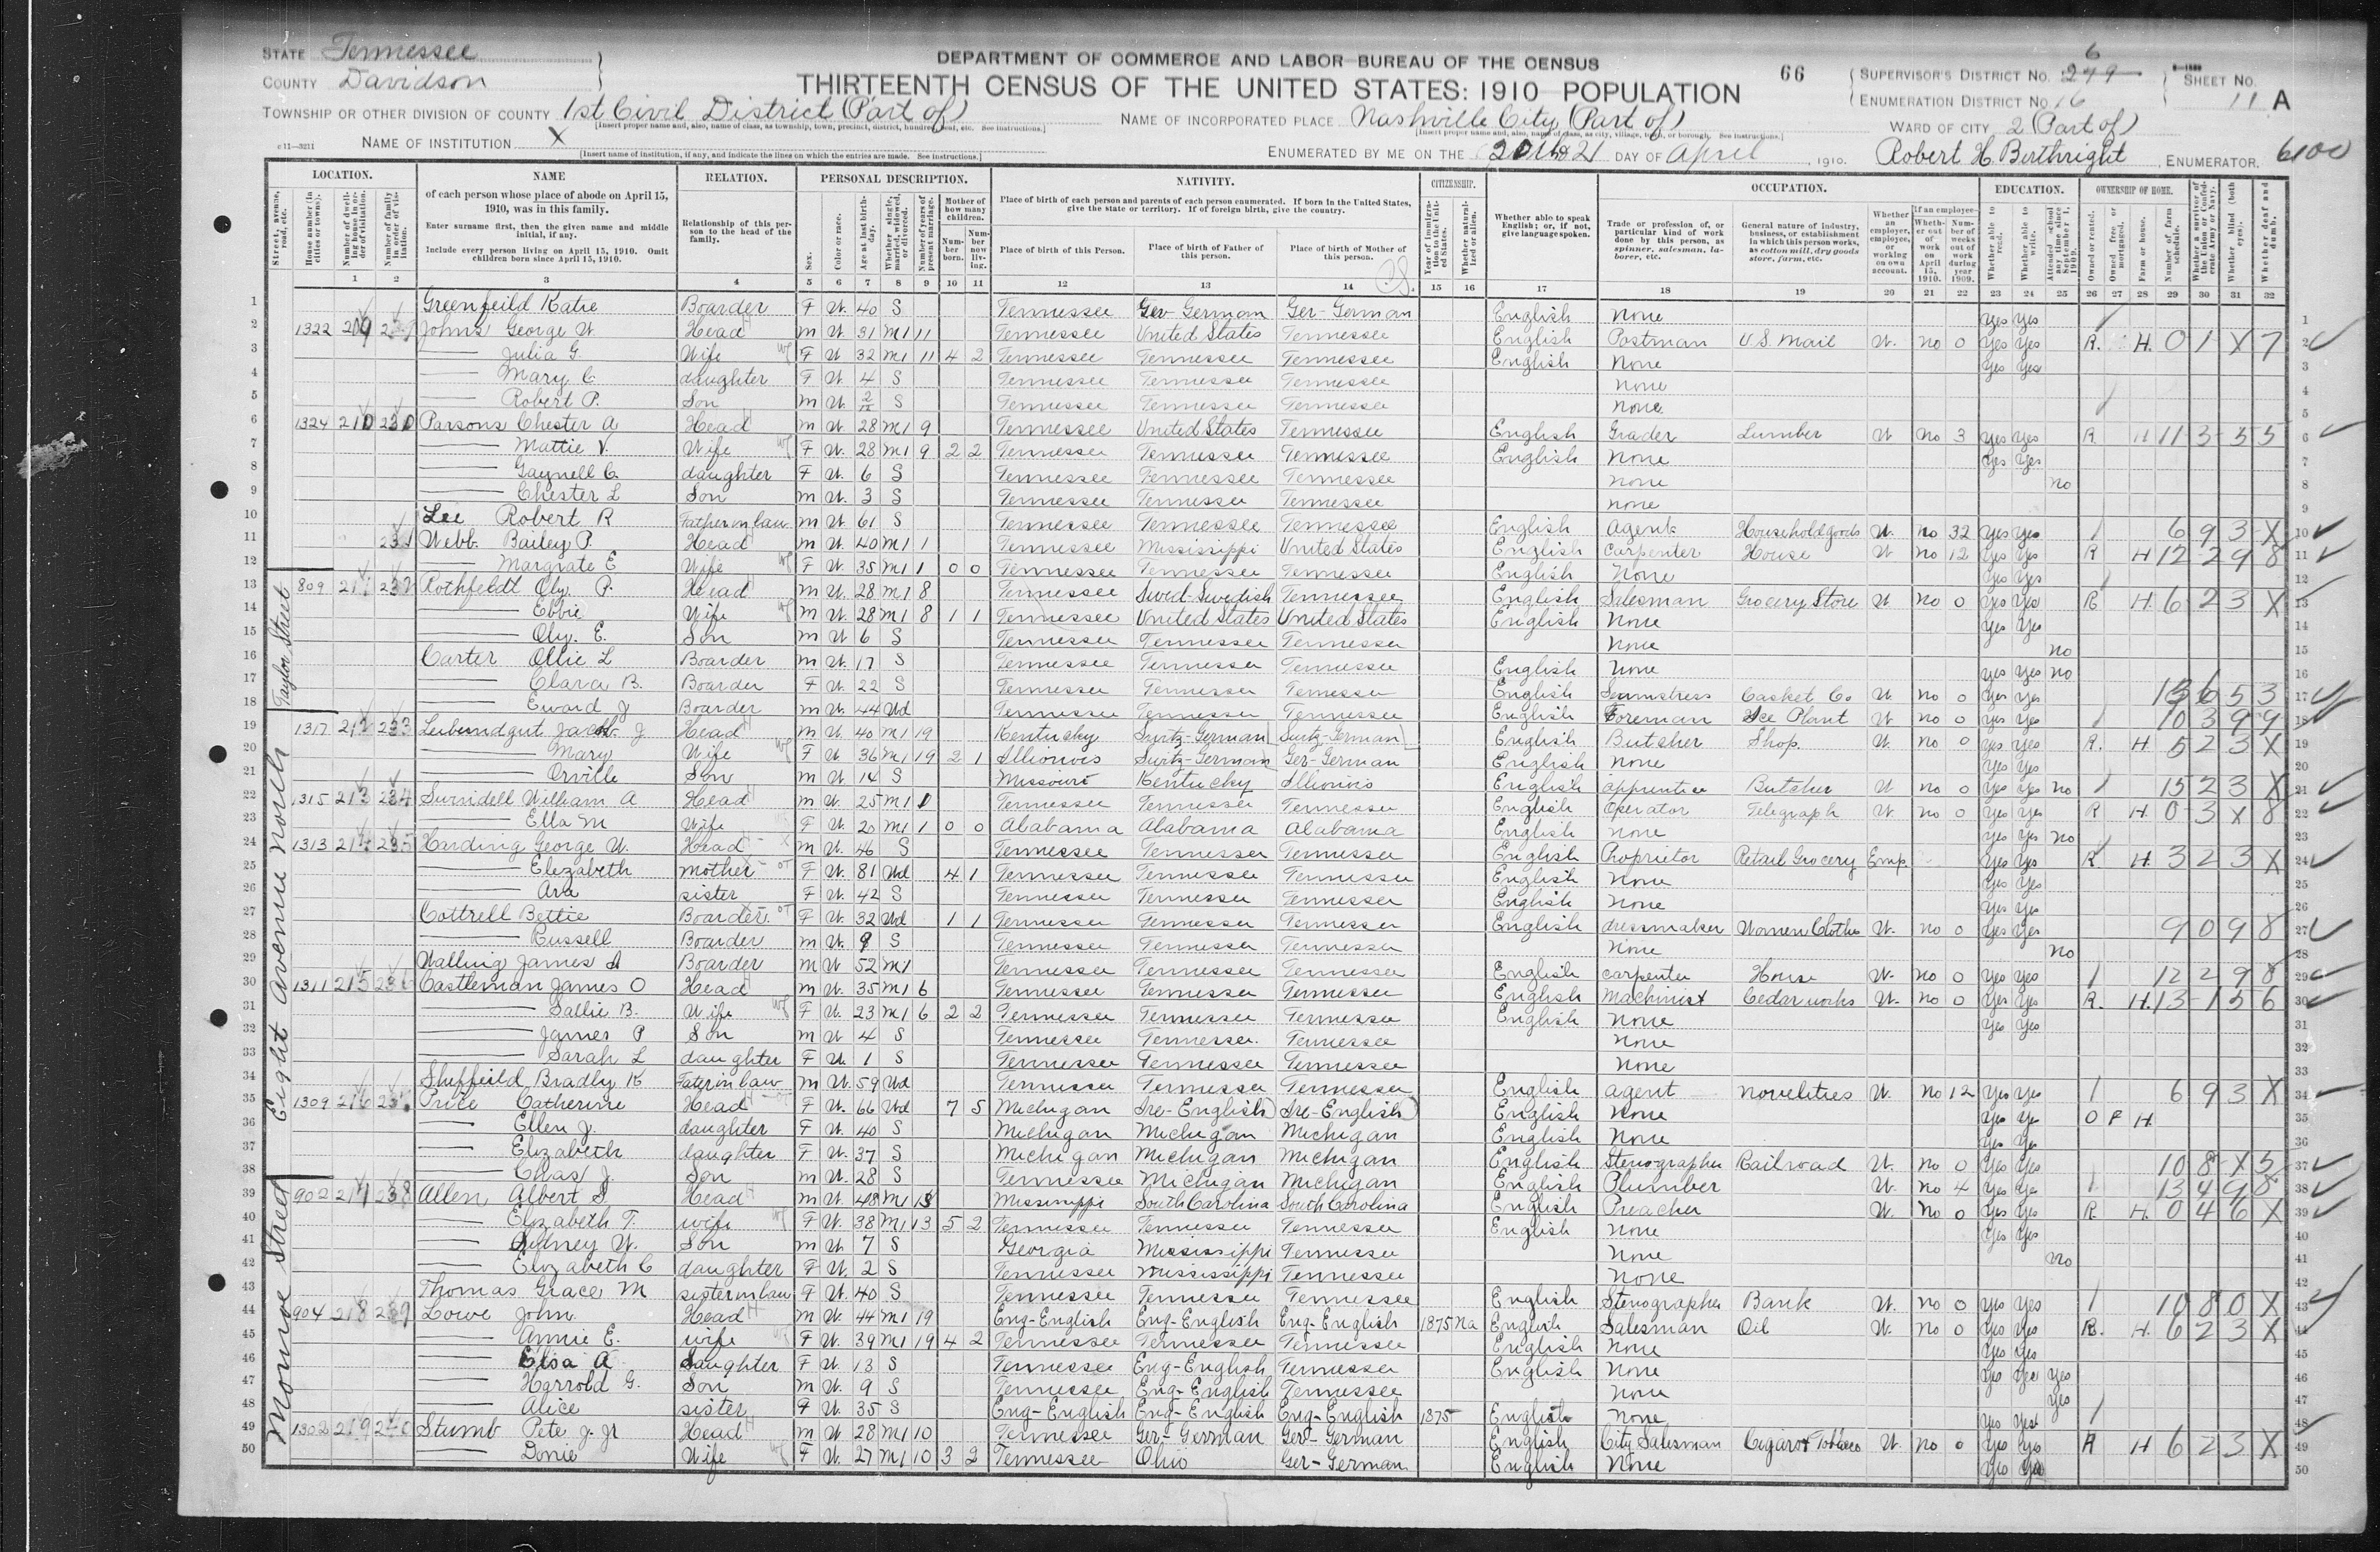 STATE Tennessee
COUNTY Davidson
DEPARTMENT OF COMMERCE AND LABOR-BUREAU OF THE CENSUS
THIRTEENTH CENSUS OF THE UNITED STATES: 1910 POPULATION
66
SUPERVISOR'S DISTRICT NO. 249 6
ENUMERATION DISTRICT NO. 16
SHEET NO. 11 A
TOWNSHIP OR OTHER DIVISION OF COUNTY 1st Civil District (Part of)
NAME OF INCORPORATED PLACE Nashville City (Part of)
WARD OF CITY 2 (Part of)
NAME OF INSTITUTION X
ENUMERATED BY ME ON THE DAY OF April, 1910. Robert H. Birthright, ENUMERATOR. 6100
LOCATION. NAME RELATION. PERSONAL DESCRIPTION. NATIVITY. CITIZENSHIP. OCCUPATION. EDUCATION. OWNERSHIP OF HOME.
of each person whose place of abode on April 15, 1910, was in this family.
Enter surname first, then the given name and middle initial, if any.
Include every person living on April 15, 1910. Omit children born since April 15, 1910.
Relationship of this person to the head of the family.
Place of birth of each person and parents of each person enumerated. If born in the United States, give the state or territory. If of foreign birth, give the country.
Place of birth of this Person. Place of birth of Father of this person. Place of birth of Mother of this person.
Whether able to speak English; or, if not, give language spoken.
1 Greenfeild Katie Boarder F W. 40 S Tennessee Ger German Ger-German English None Yes Yes
2 1322 209 Johns George W Head m W. 31 M1 11 Tennessee United States Tennessee English Postman U.S. Mail W. no 0 Yes Yes R. H. 0 1 X 7
3 Julia G. Wife F W 32 M1 11 4 2 Tennessee Tennessee Tennessee English None Yes Yes
4 Mary C. daughter F W. 4 S Tennessee Tennessee Tennessee None
5 Robert P. Son m W. 2/12 S Tennessee Tennessee Tennessee None
6 1324 210 230 Parsons Chester A Head m W. 28 M1 9 Tennessee United States Tennessee English Grader Lumber W No 3 Yes Yes R H 11 3 5 5
7 Mattie V. Wife F W. 28 M1 9 2 2 Tennessee Tennessee Tennessee English None Yes Yes
8 Gaynell C. daughter F W. 6 S Tennessee Tennessee Tennessee None no
9 Chester L Son m W. 3 S Tennessee Tennessee Tennessee none
10 Lee Robert R Father in law m W. 61 S Tennessee Tennessee Tennessee English Agent Household goods W. no 32 Yes Yes 6 9 3 X
11 231 Webb. Bailey P. Head m W. 40 M1 1 Tennessee Mississippi United States English Carpenter House W no 12 Yes Yes R H 12 2 9 8
12 Margrate E Wife F W. 35 M1 1 0 0 Tennessee Tennessee Tennessee English None Yes Yes
Taylor Street
13 809 211 232 Rothfeldt Oly. P. Head m W. 28 M1 8 Tennessee Swed-Swedish Tennessee English Salesman Grocery Store W no 0 Yes Yes R H. 6 2 3 X
14 Ebbie Wife m W. 28 M1 8 1 1 Tennessee United States United States English None Yes Yes
15 Oly. E. Son m W 6 S Tennessee Tennessee Tennessee None no
16 Carter Ollie L Boarder m W. 17 S Tennessee Tennessee Tennessee English None yes Yes no
17 Clara B. Boarder F W. 22 S Tennessee Tennessee Tennessee English Seamstress Casket Co W. no 0 Yes Yes
18 Eward J Boarder m W. 44 Wd Tennessee Tennessee Tennessee English Foreman Ice Plant W no 0 Yes Yes 10 3 9 9
Eight Avenue North
19 1317 212 233 Jacob J Head m W. 40 M1 19 Kentucky Switz-German Switz German English Butcher Shop. W. no 0 yes Yes R. H. 5 2 3 X
20 Mary Wife F W 36 M1 19 2 1 Illionois Switz-German Ger-German English None Yes Yes
21 Orville Son m W 14 S Missouri Kentucky Illionois English apprentice Butcher W no 0 Yes Yes no 15 2 3 X
22 1315 213 234 Swindell William A Head m W. 25 M1 1 Tennessee Tennessee Tennessee English Operator Telegraph W. no 0 Yes Yes R H. 0 3 X 8
23 Ella M Wife F W. 20 M1 1 0 0 Alabama Alabama Alabama English None Yes Yes no
24 1313 214 235 Harding George W. Head m W. 46 S Tennessee Tennessee Tennessee English Proprietor Retail Grocery Emp. Yes Yes R H. 3 2 3 X
25 Elezabeth mother F W. 81 Wd 4 1 Tennessee Tennessee Tennessee English None Yes Yes
26 Ara sister F W. 42 S Tennessee Tennessee Tennessee English None Yes Yes
27 Cottrell Bettie Boarder F W. 32 Wd 1 1 Tennessee Tennessee Tennessee English dressmaker Women Clothes W. no 0 Yes Yes 9 0 9 8
28 Russell Boarder m W. 9 S Tennessee Tennessee Tennessee None No
29 Walling James A Boarder m W 52 M1 Tennessee Tennessee Tennessee English carpenter House W. no 0 Yes Yes 12 2 9 8
30 1311 215 236 Castleman James O Head m W. 35 M1 6 Tennessee Tennessee Tennessee English Machinist Cedar works W. no 0 Yes Yes R. H. 13 1 5 6
31 Sallie B. Wife F W. 23 M1 6 2 2 Tennessee Tennessee Tennessee English None Yes Yes
32 James P Son m W 4 S Tennessee Tennessee Tennessee None
33 Sarah L daughter F W. 1 S Tennessee Tennessee Tennessee None
34 Sheffeild Bradly K Faterinlaw m W. 59 Wd Tennessee Tennessee Tennessee English agent novelities W. No 12 Yes Yes 6 9 3 X
35 1309 216 Price Catherine Head F W. 66 Wd 7 5 Michigan Ire-English Ire-English English None Yes Yes O F H.
36 Ellen J. daughter F W. 40 S Michigan Michigan Michigan English None Yes Yes
37 Elizabeth daughter F W. 37 S Michigan Michigan Michigan English Stenographer Railroad W. no 0 Yes Yes 10 8 X 5
38 Chas J. Son m W. 28 S Tennessee Michigan Michigan English Plumber W. no 4 Yes Yes 13 4 9 8
Monroe Street
39 902 217 238 Allen Albert S Head m W. 48 M1 13 Mississippi South Carolina South Carolina English Preacher W. no 0 Yes Yes R H. 0 4 6 X
40 Elizabeth T. wife F W. 38 M1 13 5 2 Tennessee Tennessee Tennessee English None Yes Yes
41 Sidney W. Son m W 7 S Georgia Mississippi Tennessee None No
42 Elizabeth C daughter F W. 2 S Tennessee Mississippi Tennessee None
43 Thomas Grace M sister in law F W. 40 S Tennessee Tennessee Tennessee English Stenographer Bank W. no 0 Yes Yes 10 8 0 X
44 904 218 239 Lowe John Head m W. 44 M1 19 Eng-English Eng-English Eng-English 1875 Na English Salesman Oil W. no 0 Yes Yes R. H. 6 2 3 X
45 Annie E. wife F W. 39 M1 19 4 2 Tennessee Tennessee Tennessee English None Yes Yes
46 Elsa A daughter F W. 13 S Tennessee Eng-English Tennessee English None Yes Yes Yes
47 Harrold G. Son m W. 9 S Tennessee Eng-English Tennessee None Yes
48 Alice sister F W. 35 S Eng-English Eng-English Eng-English 1875 English None Yes Yes
49 1302 219 240 Stumb Pete J. Jr Head m W. 28 M1 10 Tennessee Ger-German Ger-German English City Salesman Cigar & Tobacco W. no 0 Yes Yes R H 6 2 3 X
50 Donie Wife F W. 27 M1 10 3 2 Tennessee Ohio Ger-German English None Yes Yes